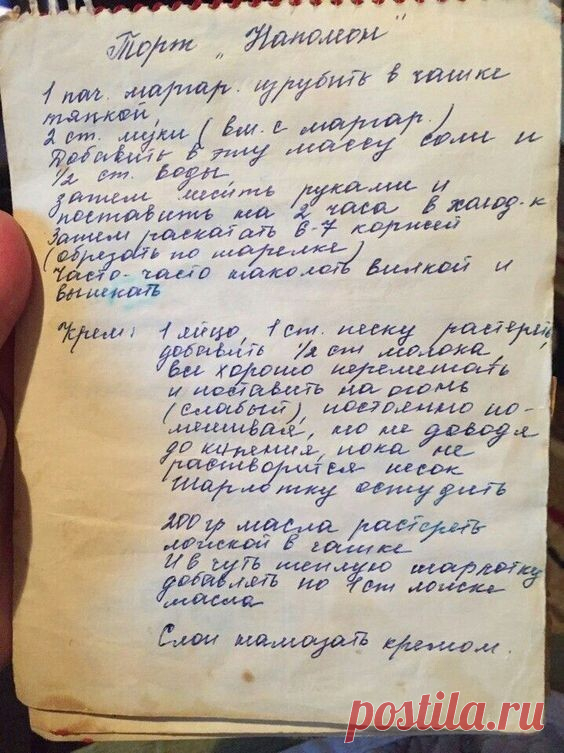 Торт „Наполеон"
1 пач. маргар. изрубить в чашке
тяпкой,
2 ст. муки (вм. с маргар.)
Добавить в эту массу соли и
1/2 ст. воды
затем месить руками и
поставить на 2 часа в холод-к
Затем раскатать 6-7 коржей
(обрезать по тарелке)
Часто-часто наколоть вилкой и
выпекать
Крем: 1 яйцо, 1 ст. песку растереть,
добавлять 1/2 ст молока,
все хорошо перемешать
и поставить на огонь
(слабый), постоянно по-
мешивая, но не доводя
до кипения, пока не
растворится песок
Шарлотку остудить
200 гр масла растереть
ложкой в чашке
И в чуть теплую шарлотку
добавлять по 1 ст ложке
масла
Слои намазать кремом.
postila.ru